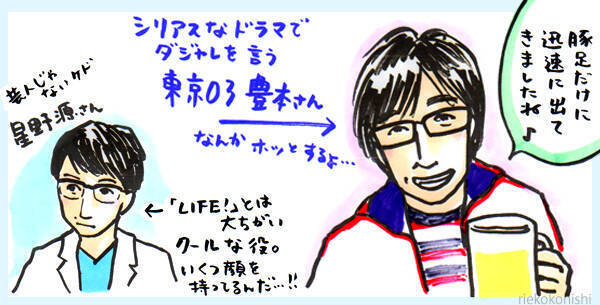 シリアスなドラマで
ダジャレを言う
東京03 豊本さん
なんか ホッとするよ…
豚足だけに
迅速に出て
きましたね♪
芸人じゃ
ないケド
星野源さん
←「LIFE!」とは
大ちがい
クールな役。
いくつ顔を
持ってるんだ…!!
riekokonishi